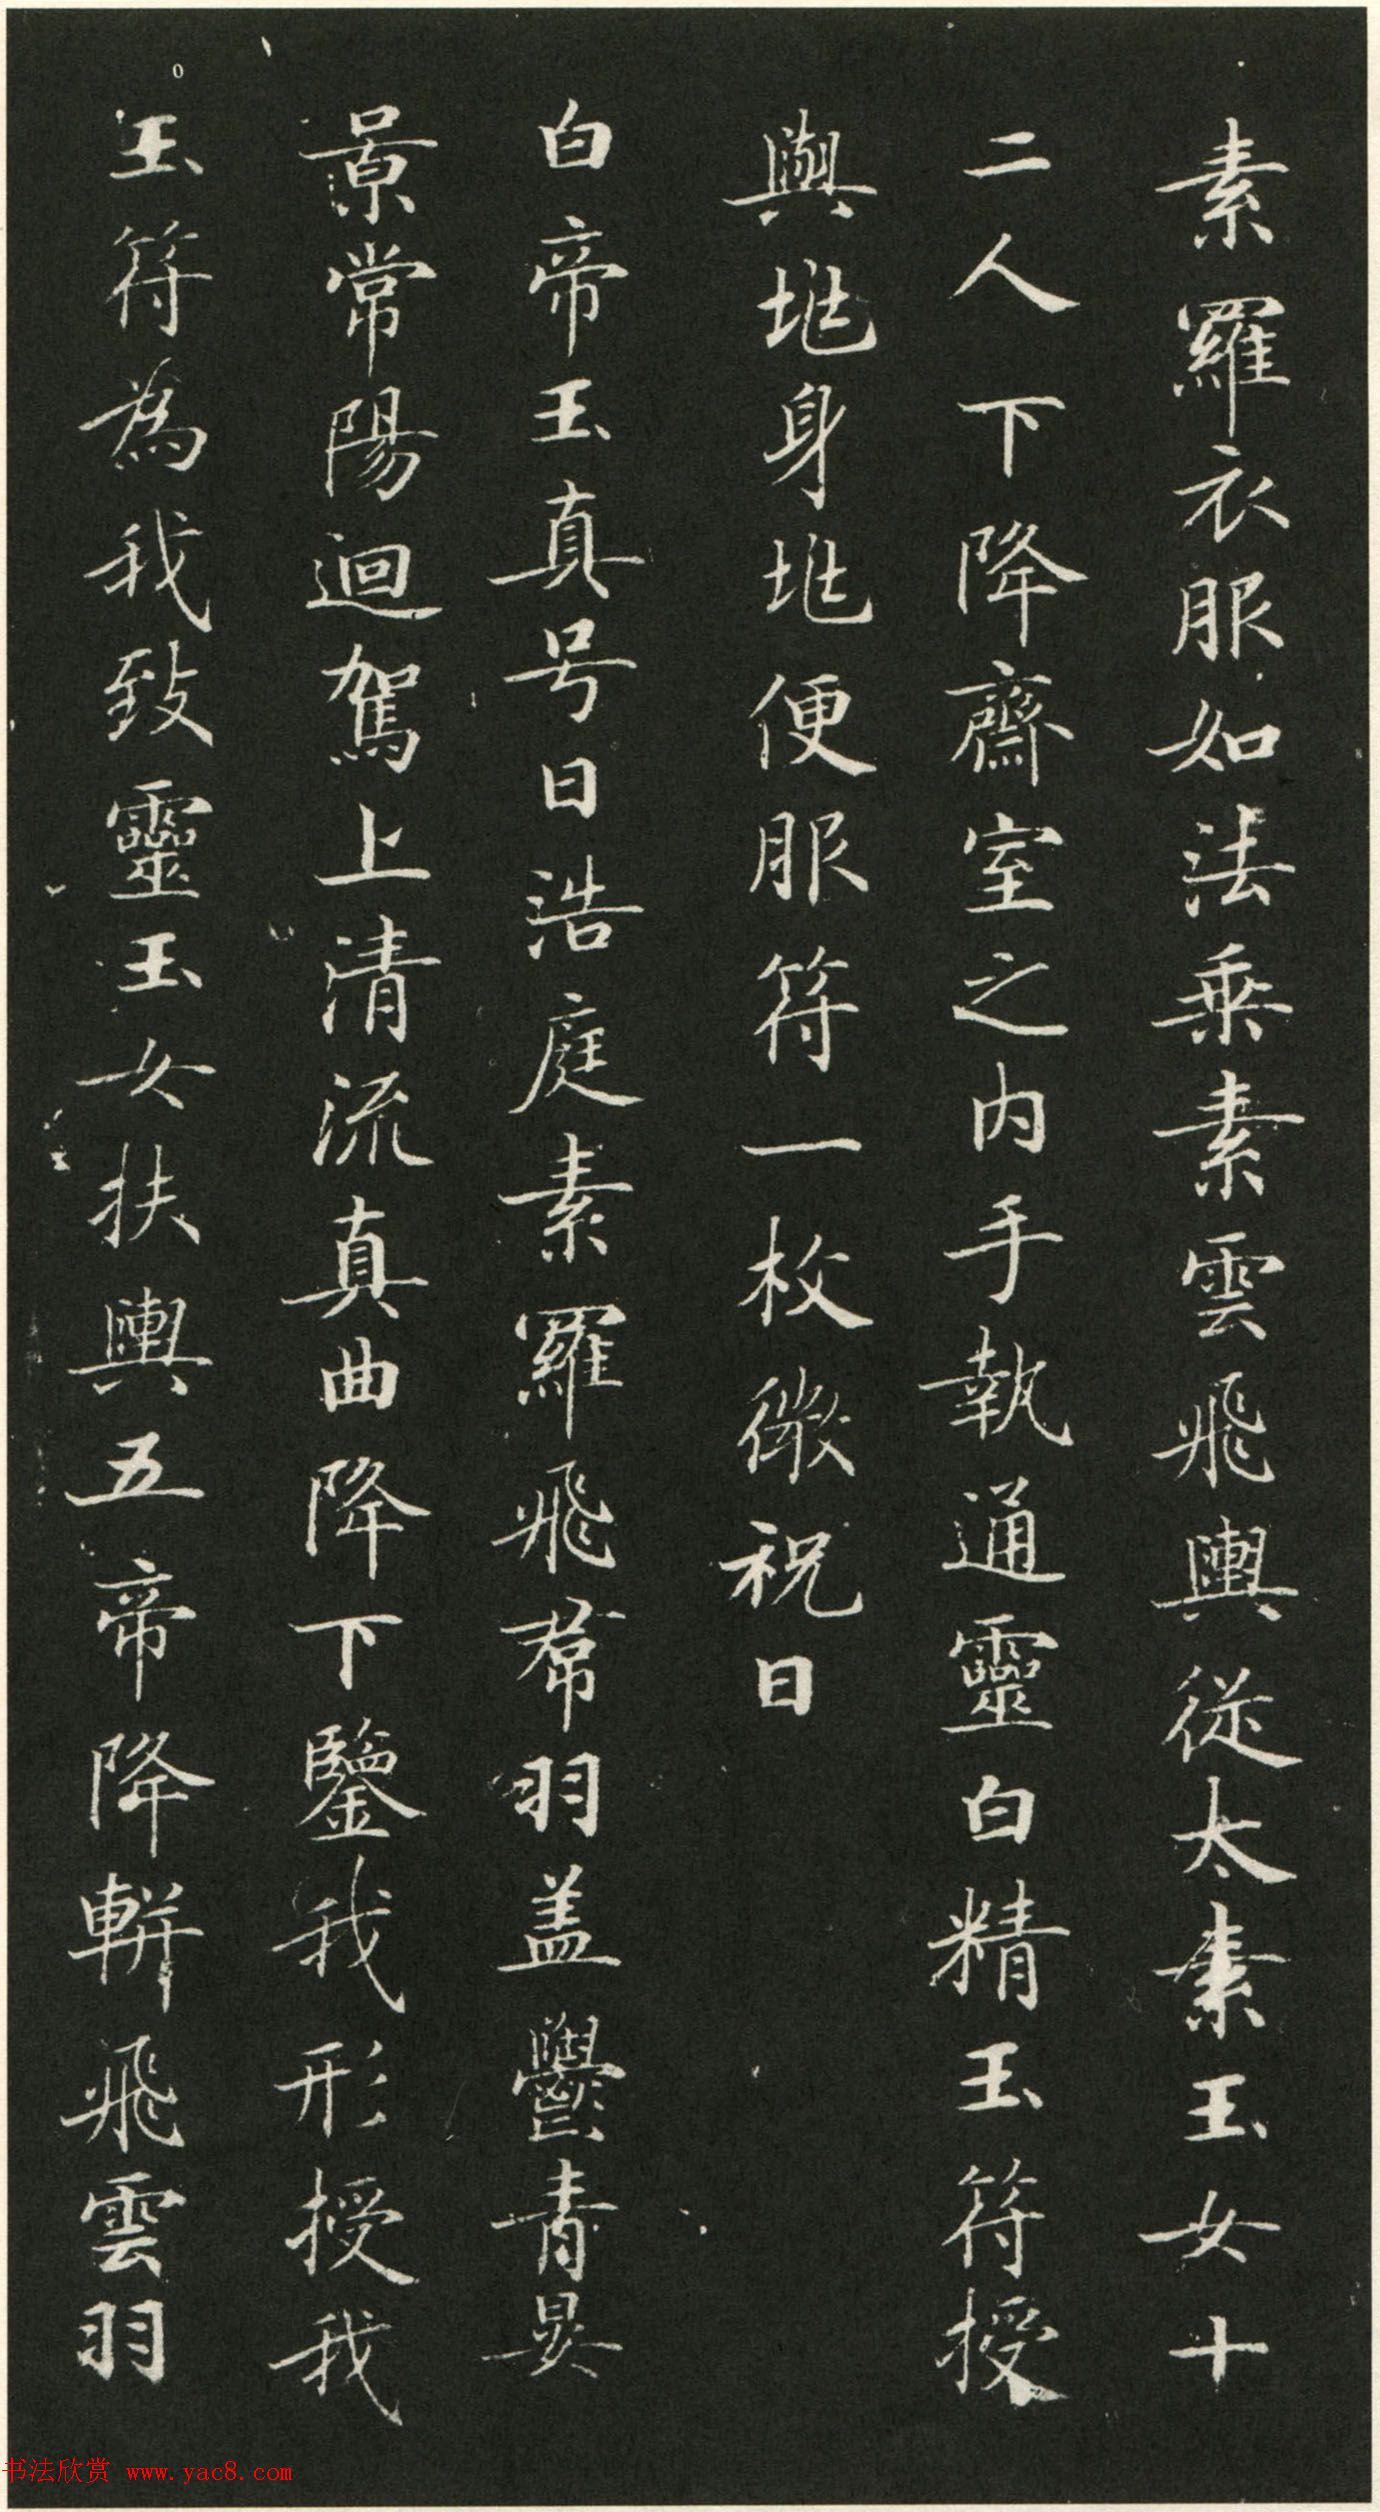 素羅衣服如法乗素雲飛輿従太素玉女十
二人下降齋室之内手執通靈白精玉符授
與垗身垗便服符一枚微祝曰
白帝玉真号曰浩庭素羅飛帬羽盖鬱青晏
景常陽迴駕上清流真曲降下鑒我形授我
玉符為我致靈玉女扶輿五帝降軿飛雲羽
书法欣赏 www.yac8.com